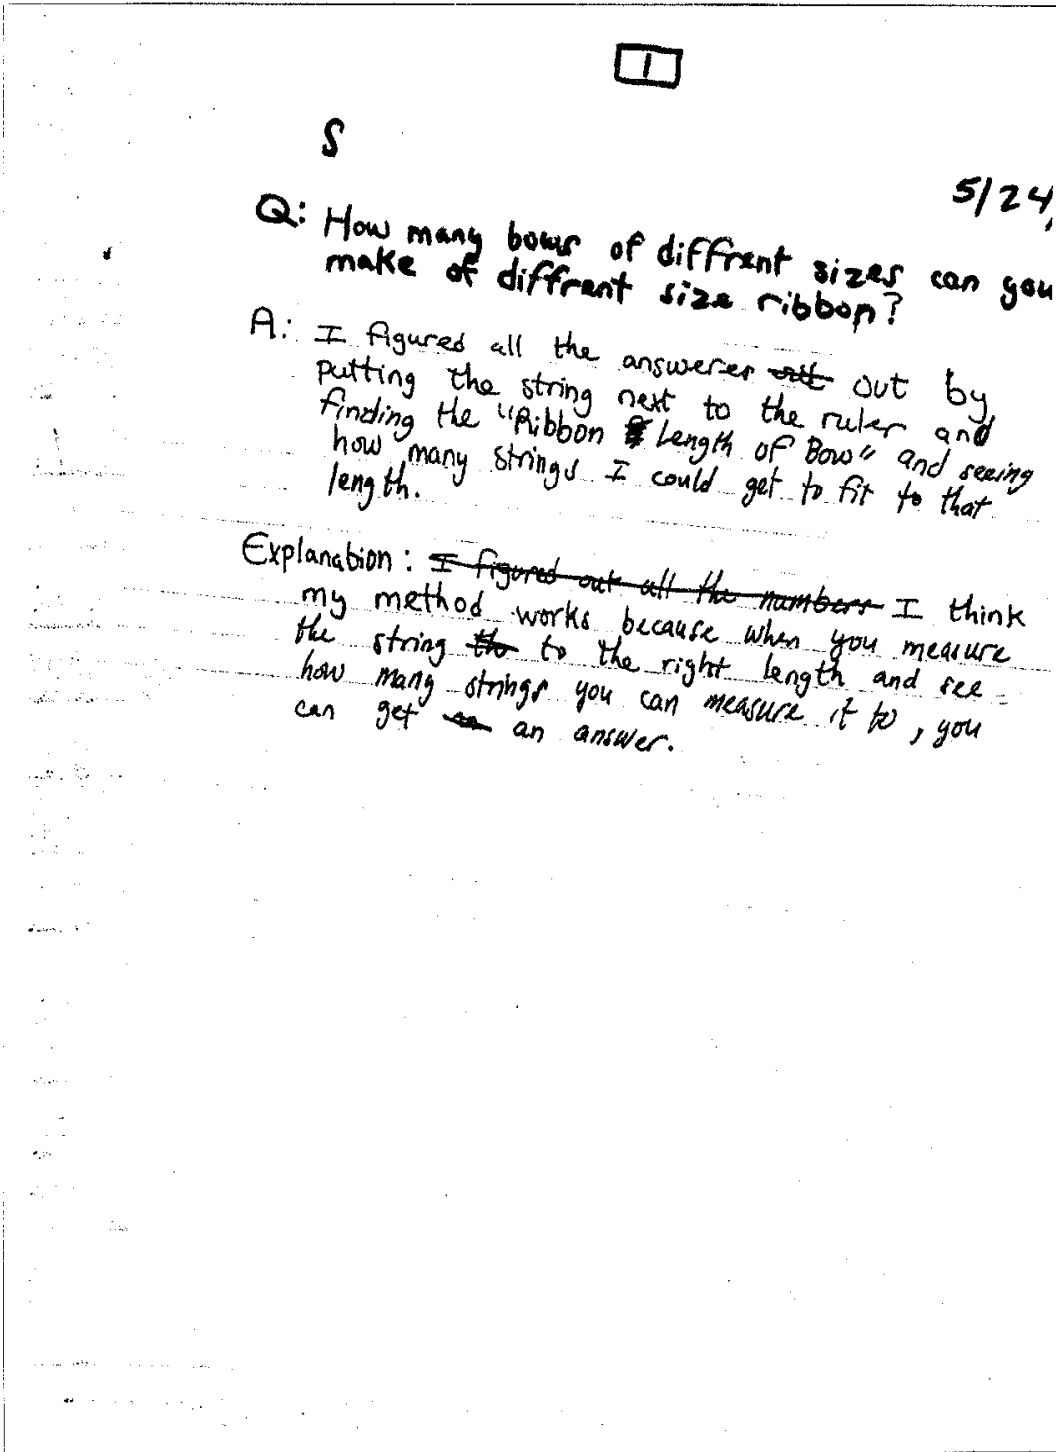 1
S
5/24,
Q: How many bows of diffrent sizes can you
make of diffrent size ribbon?
A: I figured all the answerer out by
putting the string next to the ruler and
finding the "Ribbon Length of Bow" and seeing
how many strings I could get to fit to that
length.
Explanation: I figured out all the numbers I think
my method works because when you measure
the string th to the right length and see
how many strings you can measure it to, you
can get an answer.